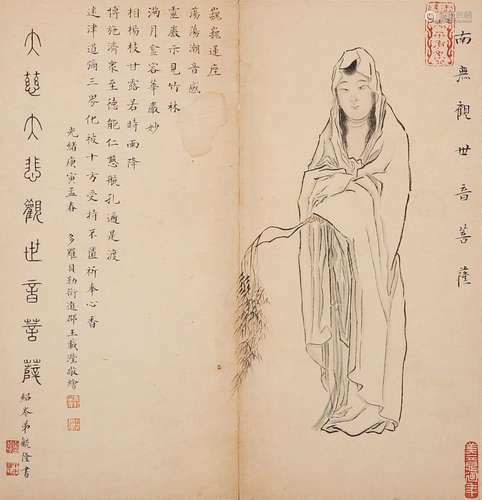 南無觀世音菩薩
巍巍蓮座
蕩蕩潮音應
靈巖示見竹林
滿月慈容華嚴妙
相楊枝甘露若時雨降
博施濟衆至德能仁慈航孔遍是渡
迷津道彌三界化被十方受持不匱祈奉心香
光緒庚寅孟春 多羅貝勒銜進郡王載瀅敬繪
大慈大悲觀世音菩薩
紹岑弟毓隆書